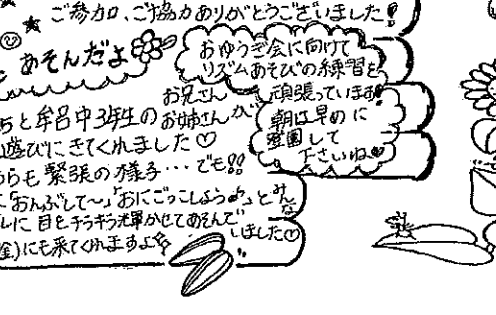 ご参加、ご協力ありがとうございました!
あそんだよ
おゆうぎ会に向けて
リズムあそびの練習を
頑張っています
朝は早めに
登園して
下さいね
お兄さん
ちと牟呂中3年生のお姉さんが
遊びにきてくれました♡
らも緊張の様子…でも!!
「おんぶして〜」「おにごっこしよう♪」とみんな
に目をキラキラ輝かせてあそんで
いました♡
(金)にも来てくれますよ